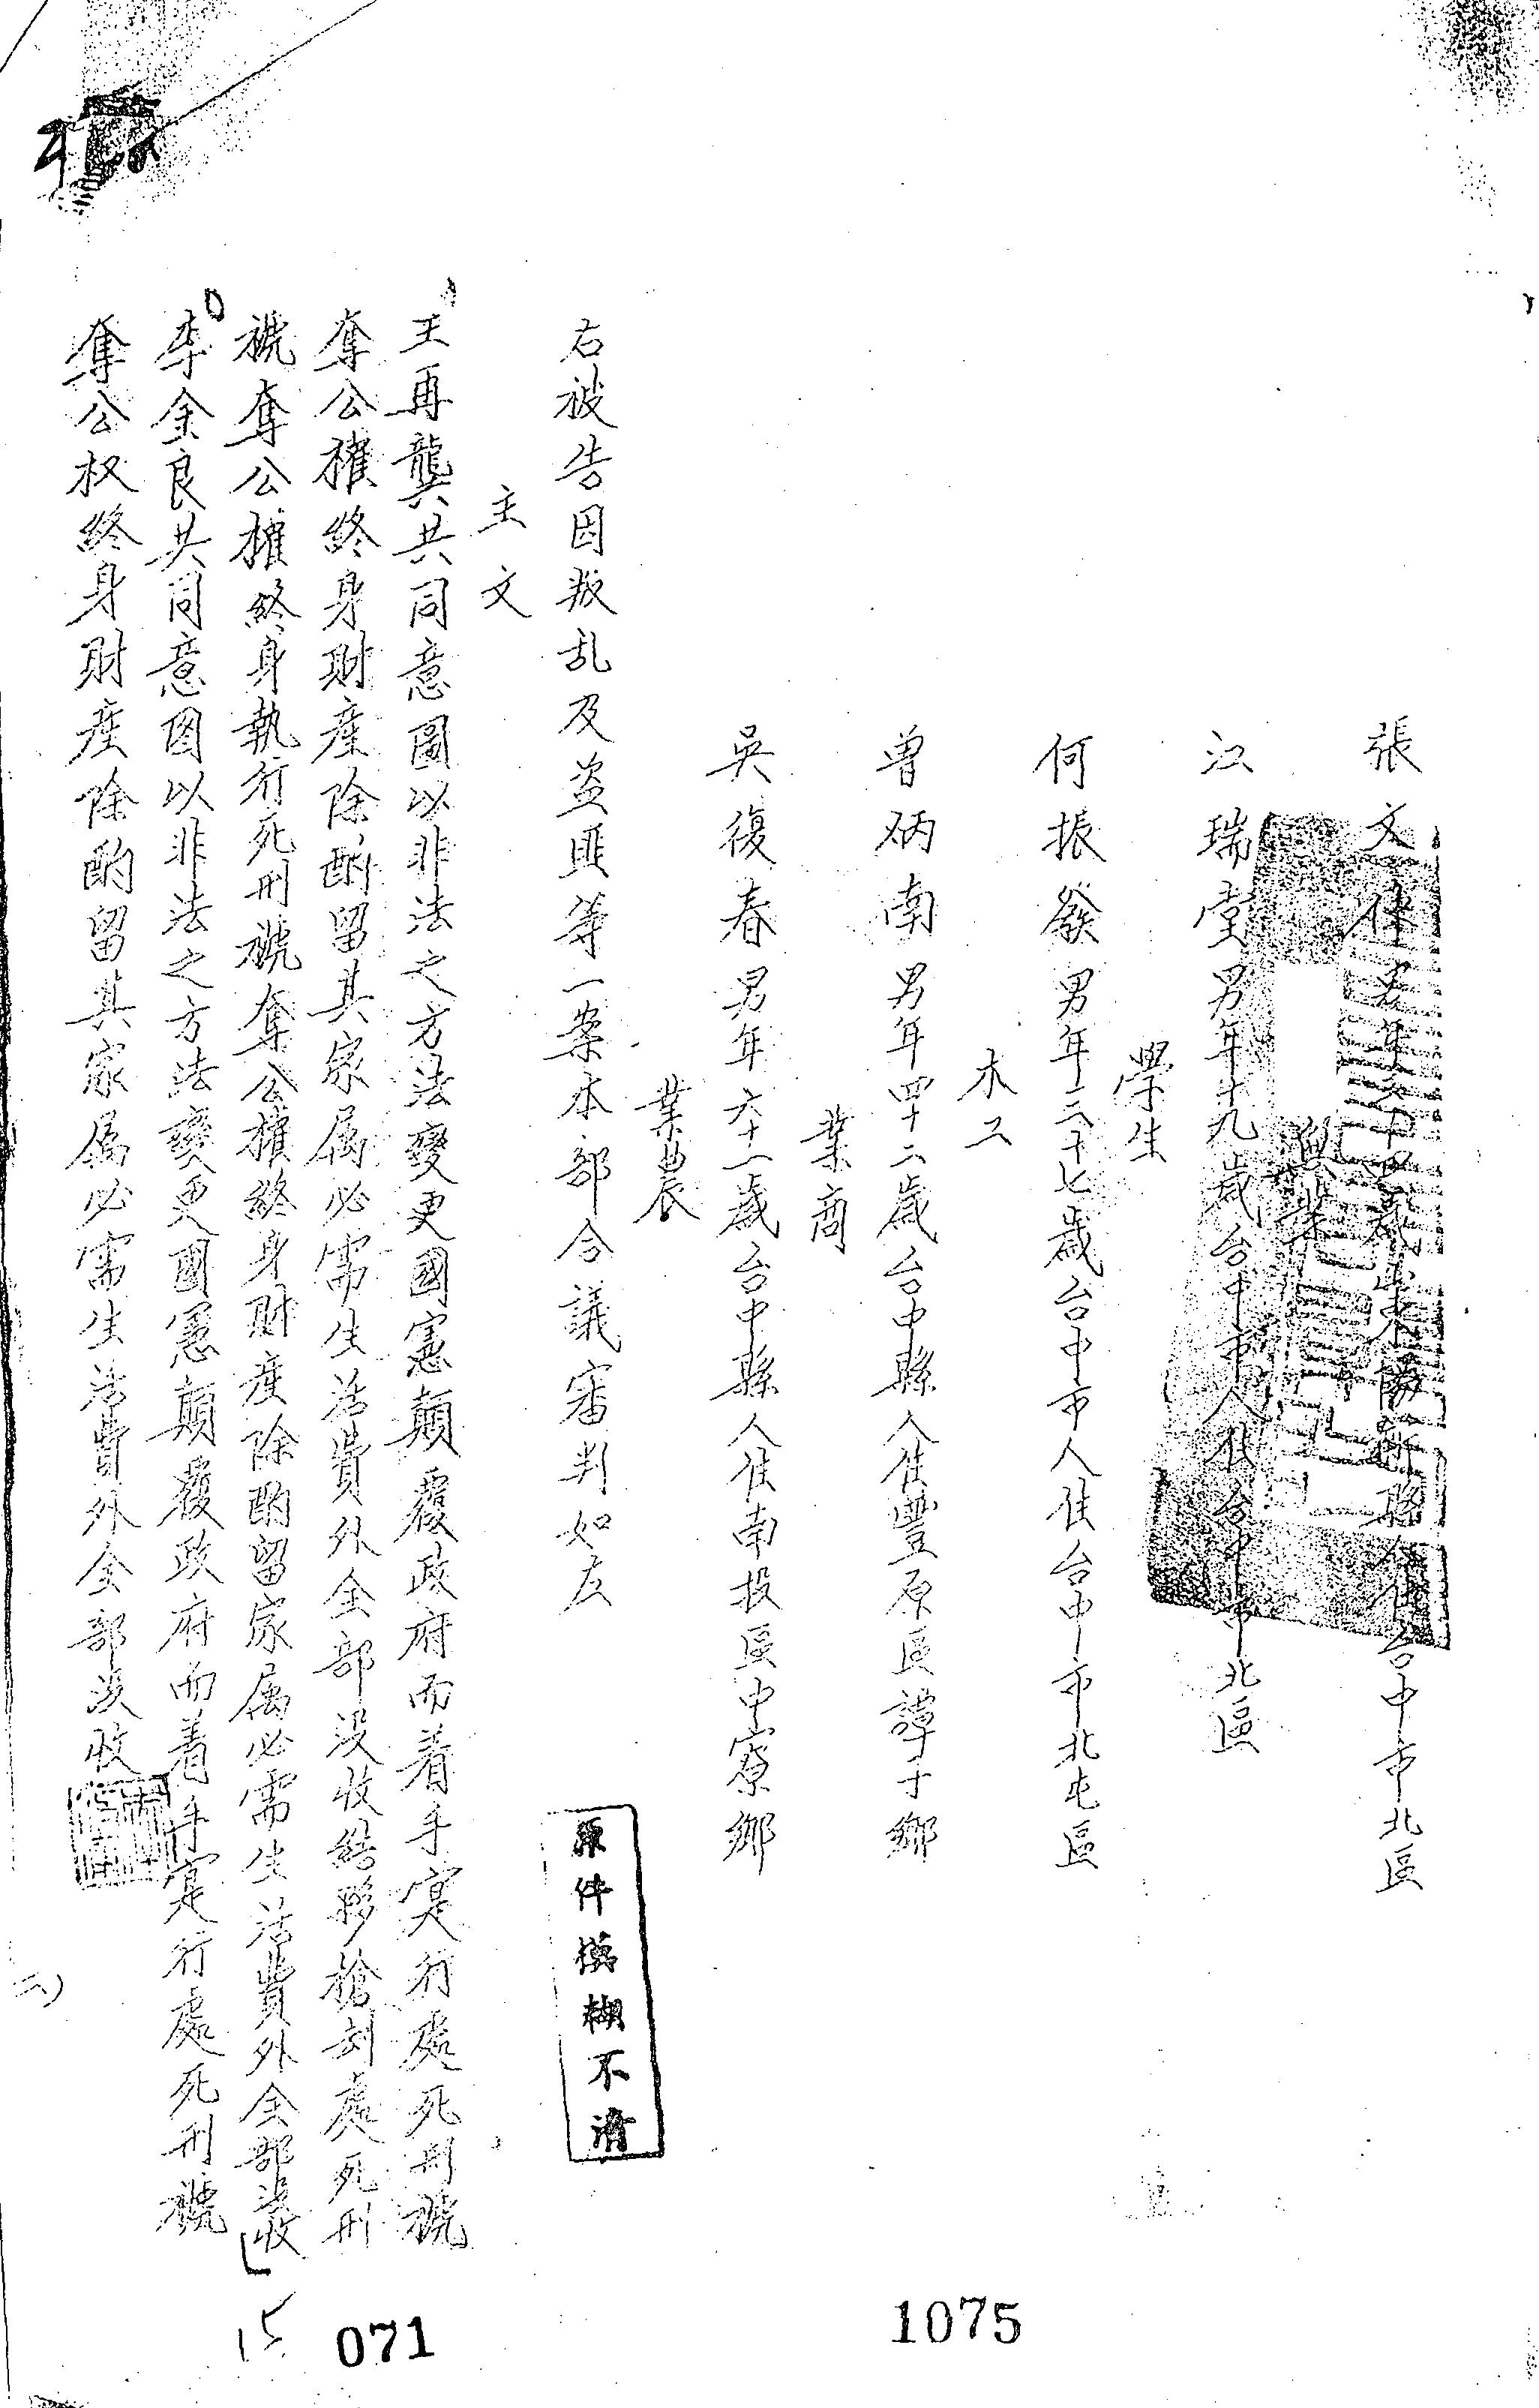 張文 男年 十四歲山東 縣人住台中市北區
無業
江瑞堂男年十九歲台中市人住台中市北區
學生
何振發男年三十七歲台中市人住台中市北屯區
木工
曾炳南男年四十二歲台中縣人住豐原區譚子鄉
業商
吳復春男年六十一歲台中縣人住南投區中寮鄉
業農
右被告因叛乱及盜匪等一案本部合議審判如左
主文
王再龔共同意圖以非法之方法變更國憲顛覆政府而着手实行處死刑褫
奪公權終身財產除酌留其家属必需生活費外全部没收結夥搶刦處死刑
褫奪公權終身執行死刑褫奪公權終身財產除酌留家属必需生活費外全部没收
李金良共同意图以非法之方法變更國憲顛覆政府而着手实行處死刑褫
奪公权終身財產除酌留其家属必需生活費外全部没收
原件模糊不清
二)
15
071
1075